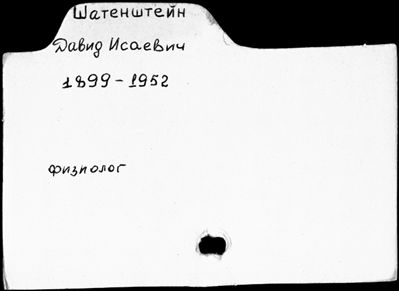 Шатенштейн
Давид Исаевич
1899-1952
физиолог